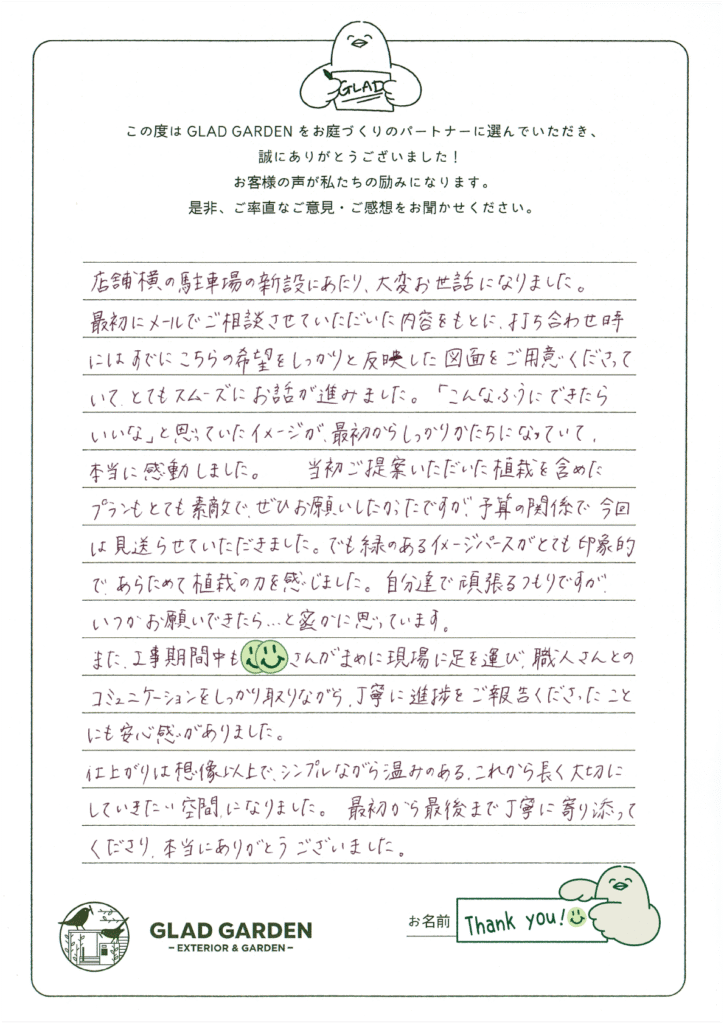 GLAD
この度は GLAD GARDEN をお庭づくりのパートナーに選んでいただき、
誠にありがとうございました！
お客様の声が私たちの励みになります。
是非、ご率直なご意見・ご感想をお聞かせください。
店舗横の駐車場の新設にあたり、大変お世話になりました。
最初にメールでご相談させていただいた内容をもとに、打ち合わせ時
にはすでにこちらの希望をしっかりと反映した図面をご用意くださって
いて、とてもスムーズにお話が進みました。「こんなふうにできたら
いいな」と思っていたイメージが、最初からしっかりかたちになっていて、
本当に感動しました。 当初ご提案いただいた植栽を含めた
プランもとても素敵で、ぜひお願いしたかったですが、予算の関係で今回
は見送らせていただきました。でも緑のあるイメージパースがとても印象的
で、あらためて植栽の力を感じました。自分達で頑張るつもりですが、
いつかお願いできたら…と密かに思っています。
また、工事期間中も さんがまめに現場に足を運び、職人さんとの
コミュニケーションをしっかり取りながら、丁寧に進捗をご報告くださったこと
にも安心感がありました。
仕上がりは想像以上で、シンプルながら温みのある、これから長く大切に
していきたい空間になりました。 最初から最後まで丁寧に寄り添って
くださり、本当にありがとうございました。
GLAD GARDEN
– EXTERIOR & GARDEN –
お名前
Thank you!